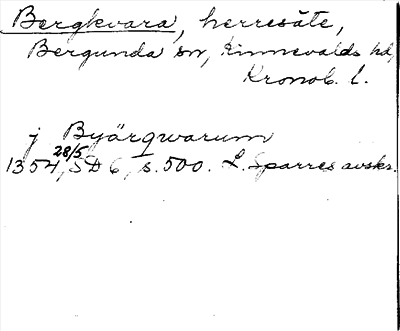 Bergkvara, herresäte,
Bergunda sn, Kinnevalds hd,
Kronob. l.
j Byärqwarum
1354 28/5, SD 6, s. 500. L. Sparres avskr.